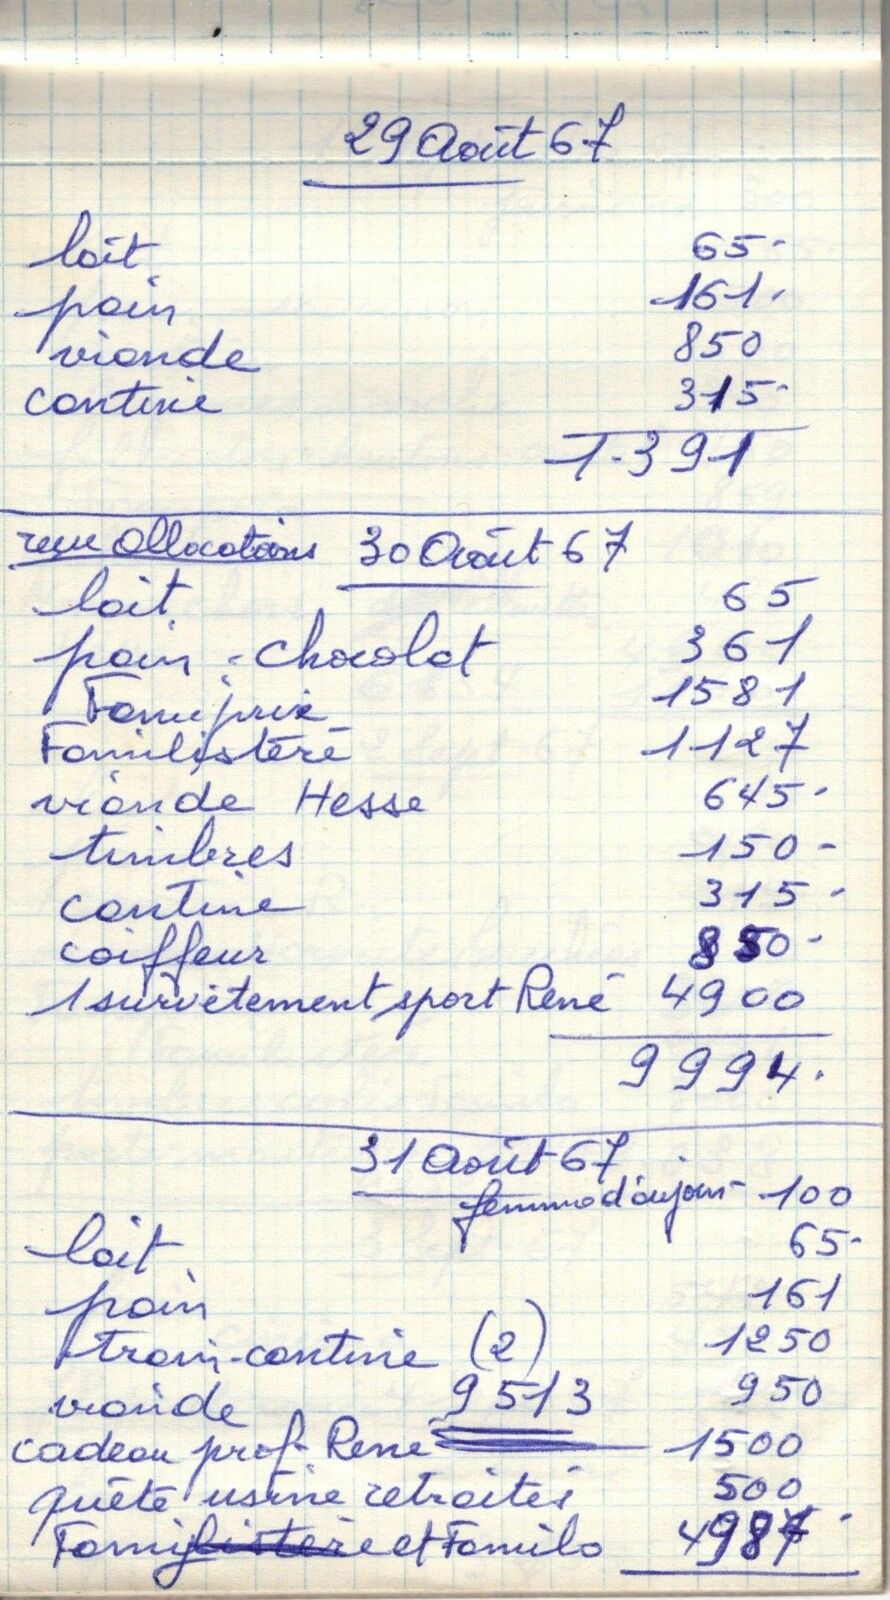 29 Août 67
lait 65.
pain 161.
viande 850
cantine 315.
1.391
reçu allocations 30 Août 67
lait 65
pain - chocolat 361
Familistère 1127
viande Hesse 645.
timbres 150 -
cantine 315.
coiffeur 850 -
1 survêtement sport René 4900
9994.
31 Août 67
femme d'aujour 100
lait 65.
pain 161
train-cantine (2) 1250
viande 9513 950
cadeau prof. René 1500
quête usine retraités 500
et Familo 4987